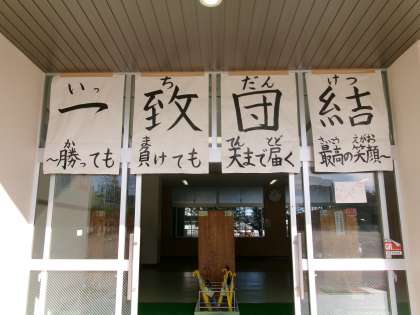 いっ ち だん けつ
一致団結
か ま てん とど さいこう えがお
～勝っても負けても天まで届く最高の笑顔～